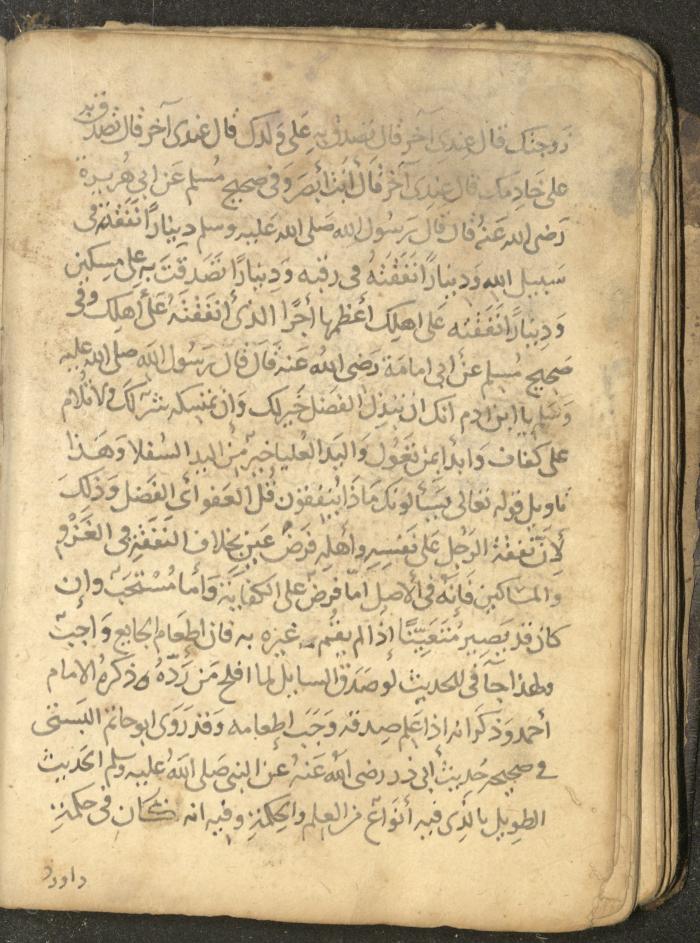 زوجتك قال عندى آخر قال تصدق به على ولدك قال عندى آخر قال تصدق به
على خادمك قال عندى آخر قال أنت أبصر وفى صحيح مسلم عن ابى هريرة
رضى الله عنه قال قال رسول الله صلى الله عليه وسلم دينارا انفقته فى
سبيل الله ودينارا انفقته فى رقبة ودينارا تصدقت به على مسكين
ودينارا انفقته على اهلك أعظمها أجرا الذى أنفقته على أهلك وفى
صحيح مسلم عن ابى امامة رضى الله عنه قال قال رسول الله صلى الله عليه
وسلم يا ابن ادم انك ان تبذل الفضل خير لك وان تمسكه شر لك ولا تلام
على كفاف وابدأ بمن تعول واليد العليا خير من اليد السفلا وهذا
تاويل قوله تعالى يسألونك ماذا ينفقون قل العفو أى الفضل وذلك
لأن نفقة الرجل على نفسه وأهله فرض عين بخلاف النفقة فى الغزو
والمساكين فانه فى الاصل اما فرض على الكفاية وأما مستحب وإن
كان قد يصير متعينا إذا لم يقم غيره به فان اطعام الجايع واجب
ولهذا جآ فى الحديث لو صدق السايل لما افلح من رده ذكره الامام
أحمد وذكر انه اذا علم صدقه وجب إطعامه وقد روى ابو حاتم البستى
فى صحيحه حديث أبى ذر رضى الله عنه عن النبى صلى الله عليه وسلم الحديث
الطويل الذى فيه أنواع من العلم والحكمة وفيه انه كان فى حكمة
داود